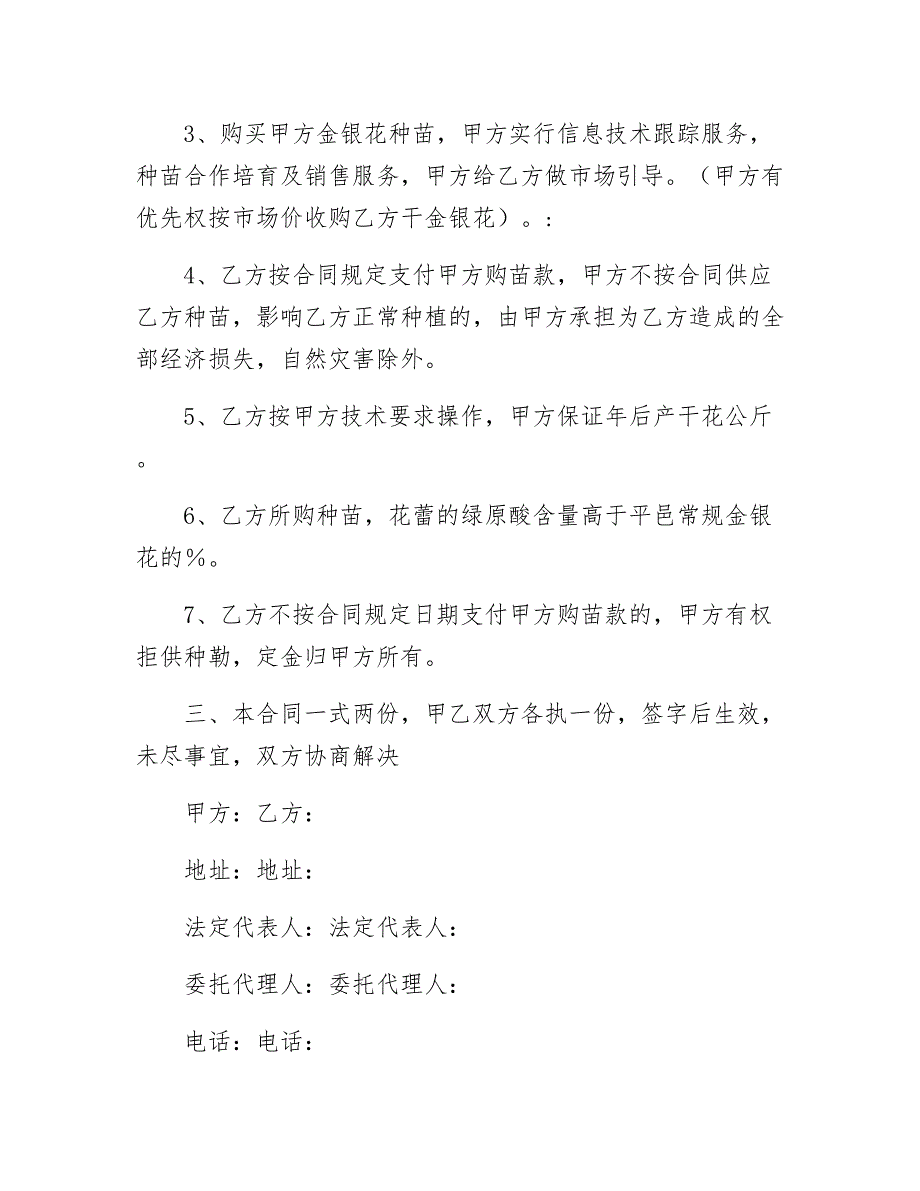 3、购买甲方金银花种苗，甲方实行信息技术跟踪服务，
种苗合作培育及销售服务，甲方给乙方做市场引导。（甲方有
优先权按市场价收购乙方干金银花）。:
4、乙方按合同规定支付甲方购苗款，甲方不按合同供应
乙方种苗，影响乙方正常种植的，由甲方承担为乙方造成的全
部经济损失，自然灾害除外。
5、乙方按甲方技术要求操作，甲方保证年后产干花公斤
。
6、乙方所购种苗，花蕾的绿原酸含量高于平邑常规金银
花的%。
7、乙方不按合同规定日期支付甲方购苗款的，甲方有权
拒供种勒，定金归甲方所有。
三、本合同一式两份，甲乙双方各执一份，签字后生效，
未尽事宜，双方协商解决
甲方：乙方：
地址：地址：
法定代表人：法定代表人：
委托代理人：委托代理人：
电话：电话：